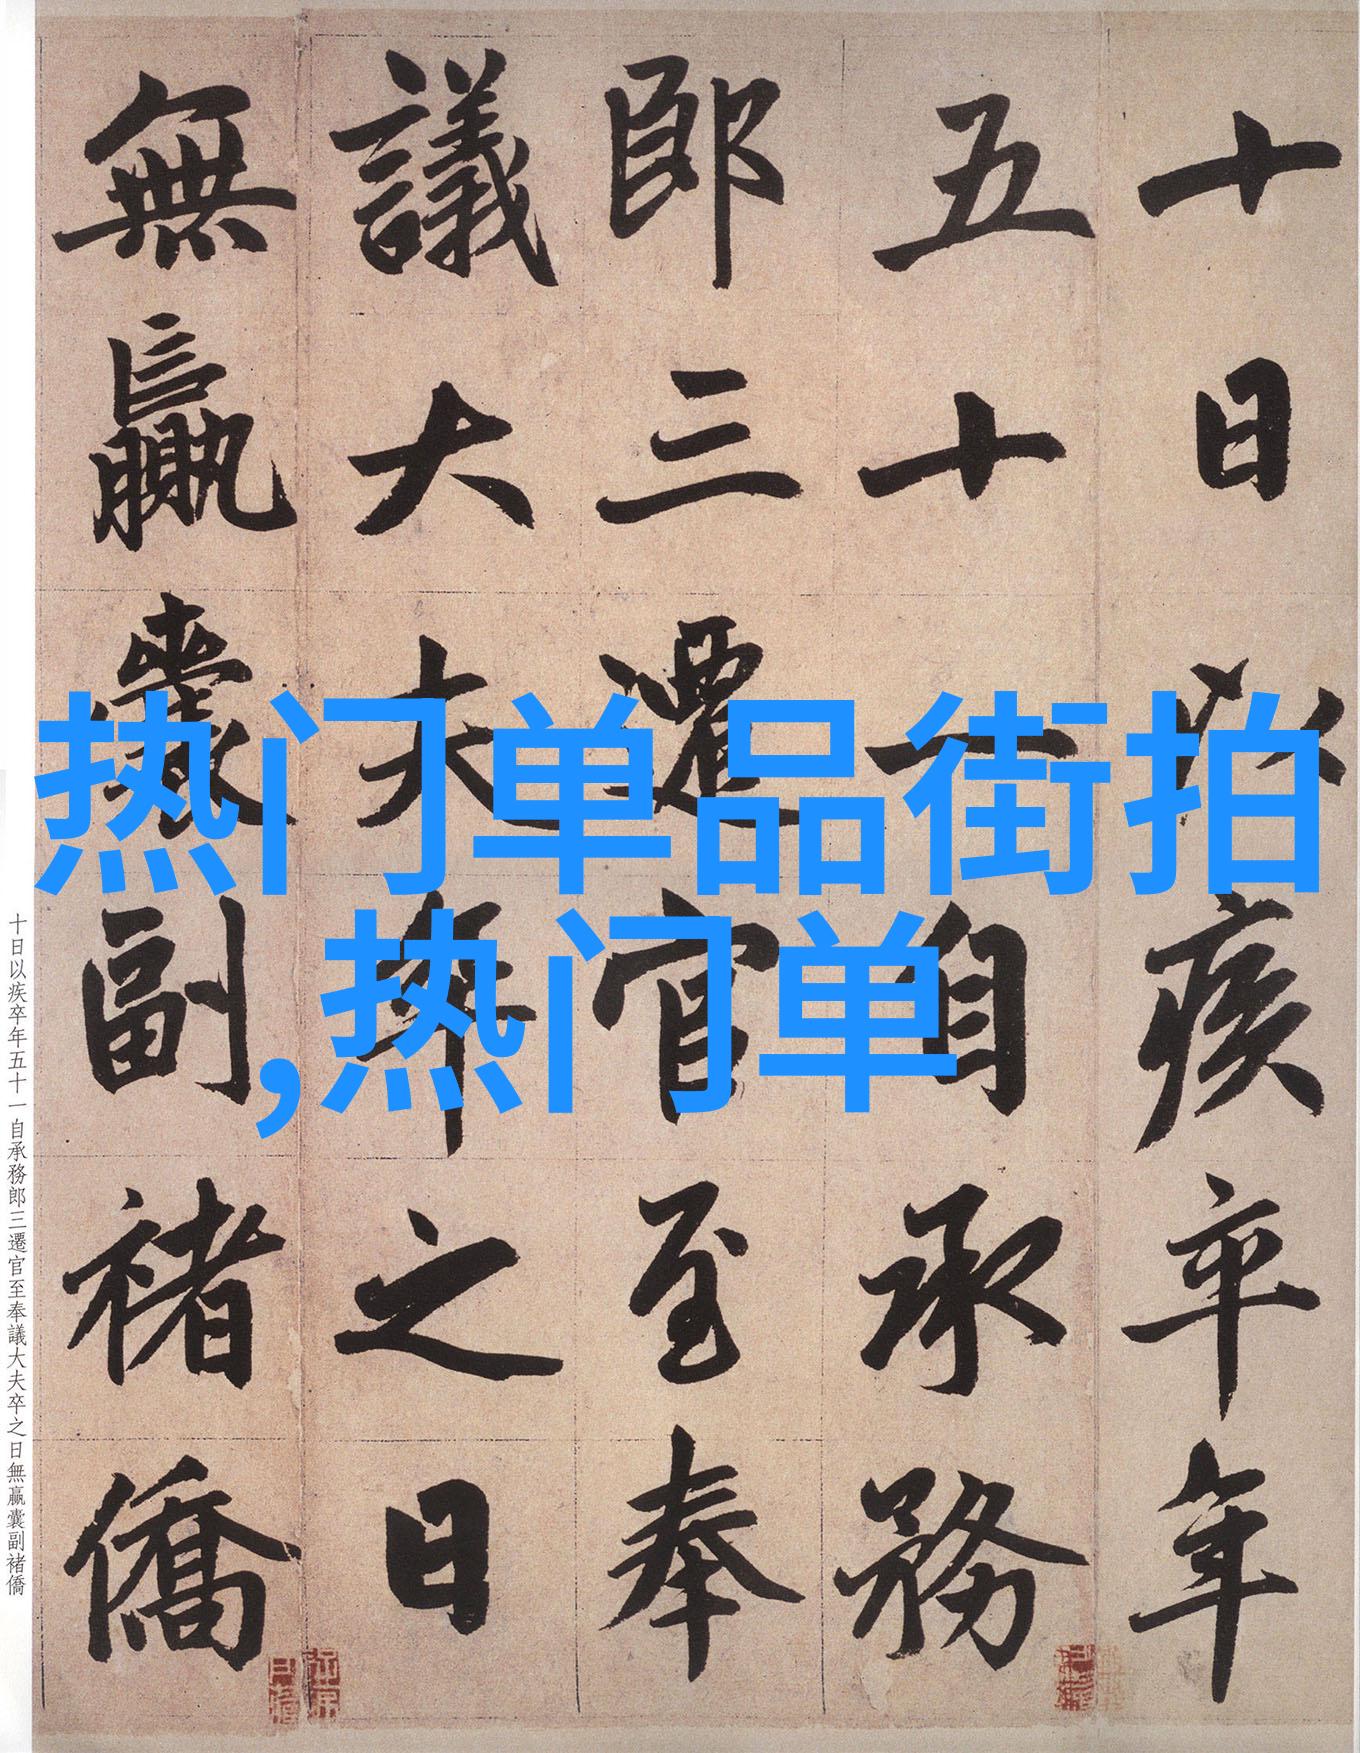 十日以疾卒年
五十一自承務
郎三遷官至奉
議大夫卒之日
無贏囊副褚僑
热门单品街拍
,热门单
十日以疾卒年五十一自承務郎三遷官至奉議大夫卒之日無贏囊副褚僑